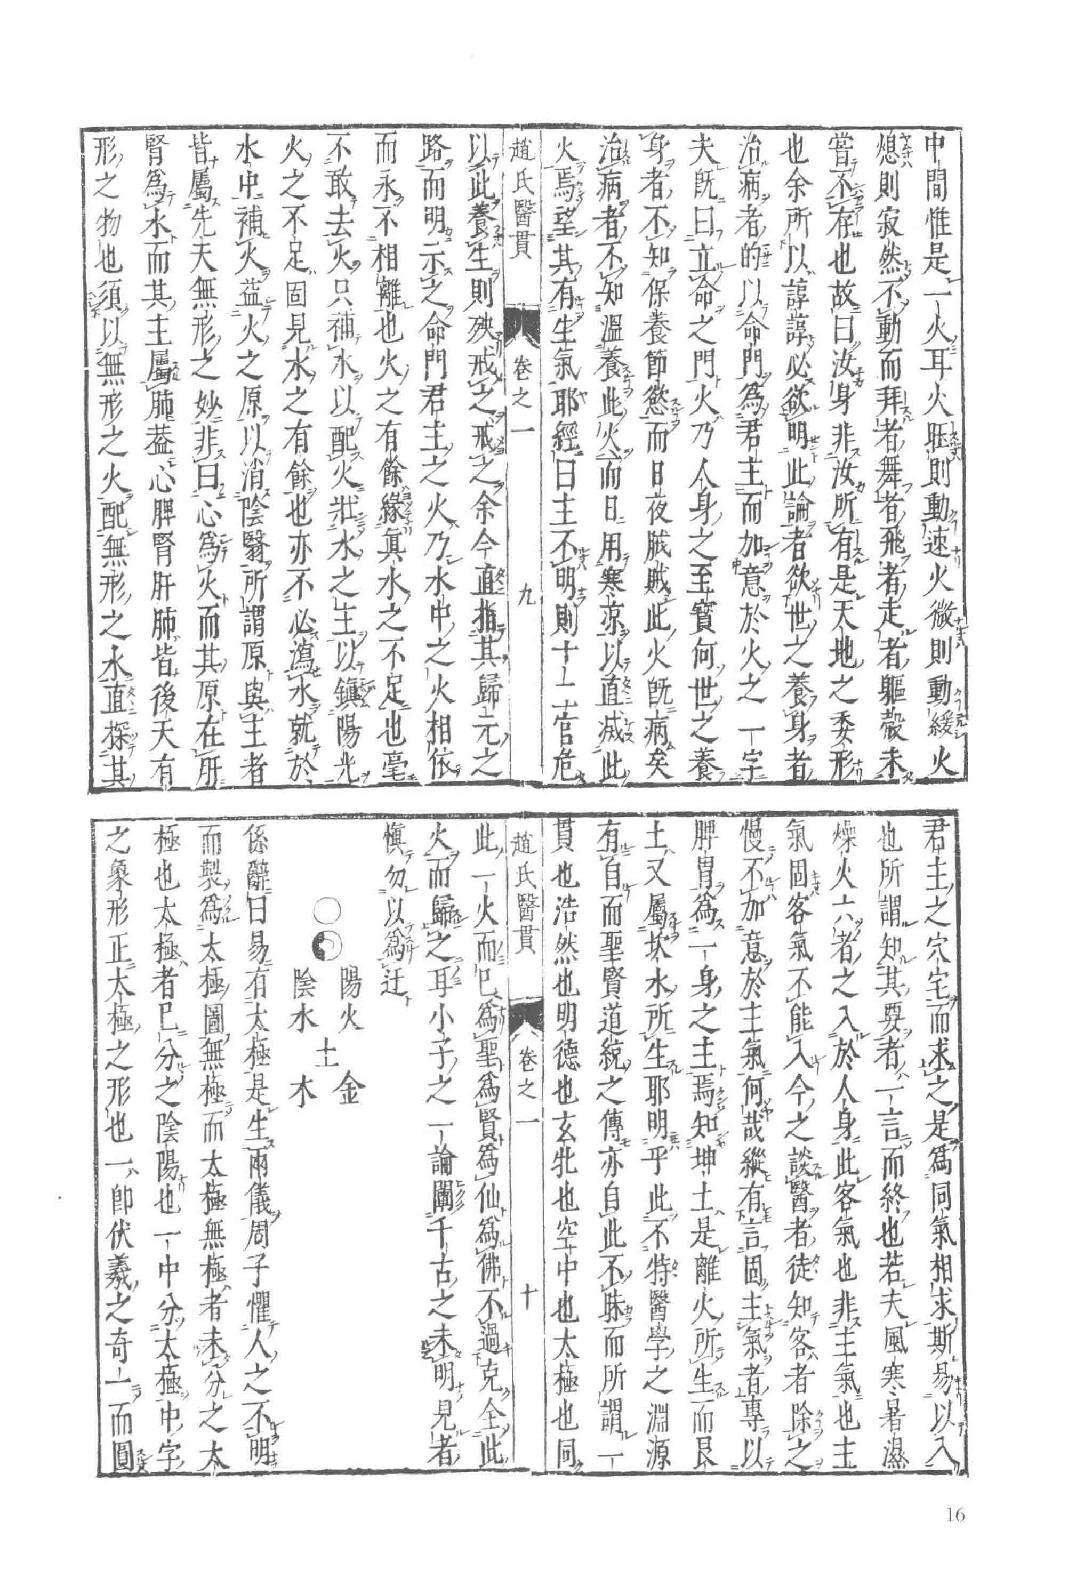 中間惟是一火耳火旺則動速火微則動緩火
熄則寂然不動而拜者舞者飛者走者軀殼未
嘗不在也故曰汝身非汝所有是天地之委形
也余所以諄諄必欲明此論者欲世之養身者
治病者的以命門為君主而加意於火之一字
夫既曰立命之門火乃人身之至寶何世之養
身者不知保養節慾而日夜戕賊此火既病矣
治病者不知溫養此火而日用寒凉以直滅此
火焉望其有生氣耶經曰主不明則十二官危
趙氏醫貫 卷之一 九
以此養生則殃戒之戒之余今直指其歸元之
路而明示之命門君主之火乃水中之火相依
而永不相離也火之有餘緣真水之不足也毫
不敢去火只補水以配火壯水之主以鎮陽光
火之不足因見水之有餘也亦不必瀉水就於
水中補火益火之原以消陰翳所謂原與主者
皆屬先天無形之妙非曰心為火而其原在肝
腎為水而其主屬肺蓋心脾腎肝肺皆後天有
形之物也須以無形之火配無形之水直探其
君主之穴宅而求之是為同氣相求斯易以入
也所謂知其要者一言而終也若夫風寒暑濕
燥火六者之入於人身此客氣也非主氣也主
氣固客氣不能入今之談醫者徒知客者除之
慢不加意於主氣何哉縱有言固主氣者專以
脾胃為一身之主焉知坤土是離火所生而艮
土又屬坎水所生耶明乎此不特醫學之淵源
有自而聖賢道統之傳亦自此不昧而所謂一
貫也浩然也明德也玄牝也空中也太極也同
趙氏醫貫 卷之一 十
此一火而已為聖為賢為仙為佛不過克全此
火而歸之耳小子之一論闡千古之未明見者
慎勿以為迂
陽火 金
土
陰水 木
係辭曰易有太極是生兩儀周子懼人之不明
而製為太極圖無極而太極無極者未分之太
極也太極者已分之陰陽也一中分太極中字
之象形正太極之形也一即伏羲之奇一而圓
16